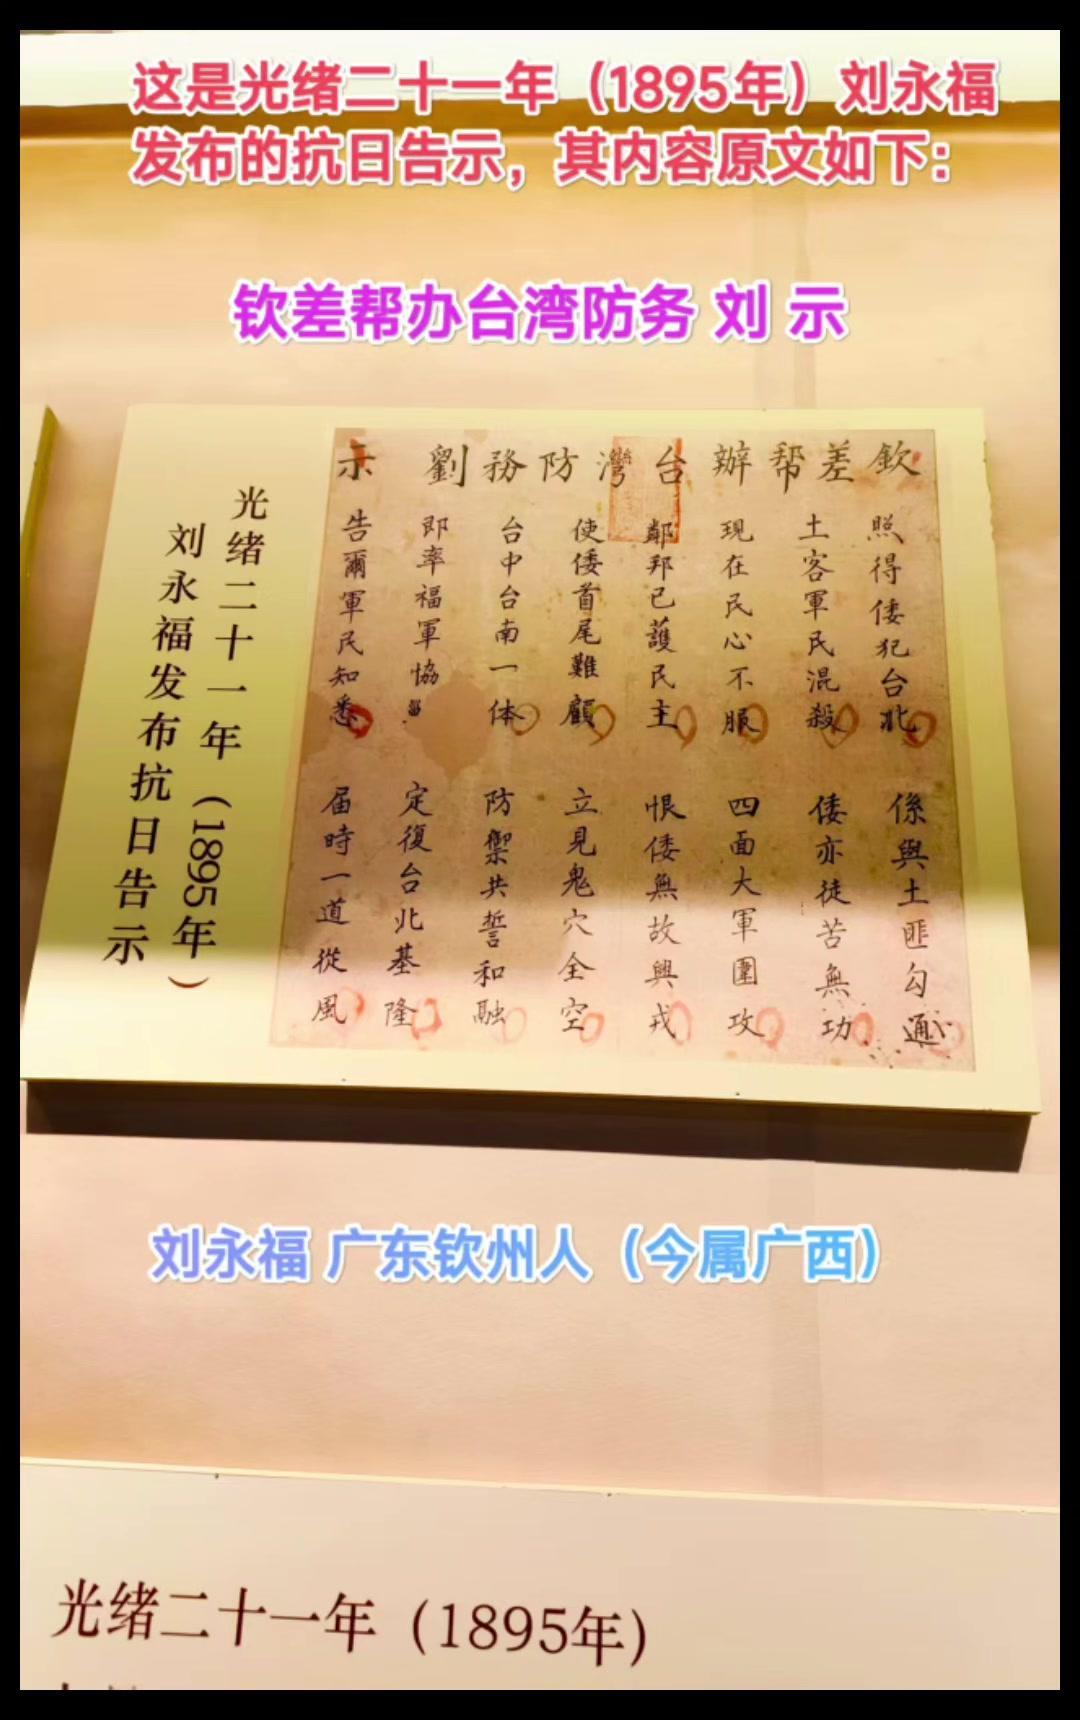 这是光绪二十一年（1895年）刘永福
发布的抗日告示，其内容原文如下：
钦差帮办台湾防务 刘 示
欽差帮辦台灣防務劉示
照得倭犯台北 係與土匪勾通
土客軍民混殺 倭亦徒苦無功
現在民心不服 四面大軍圍攻
鄰邦已護民主 恨倭無故興戎
使倭首尾難顧 立見鬼穴全空
台中台南一体 防禦共誓和融
即率福軍協 定復台北基隆
告爾軍民知悉 届時一道從風
光绪二十一年（1895年）
刘永福发布抗日告示
刘永福 广东钦州人（今属广西）
光绪二十一年（1895年）